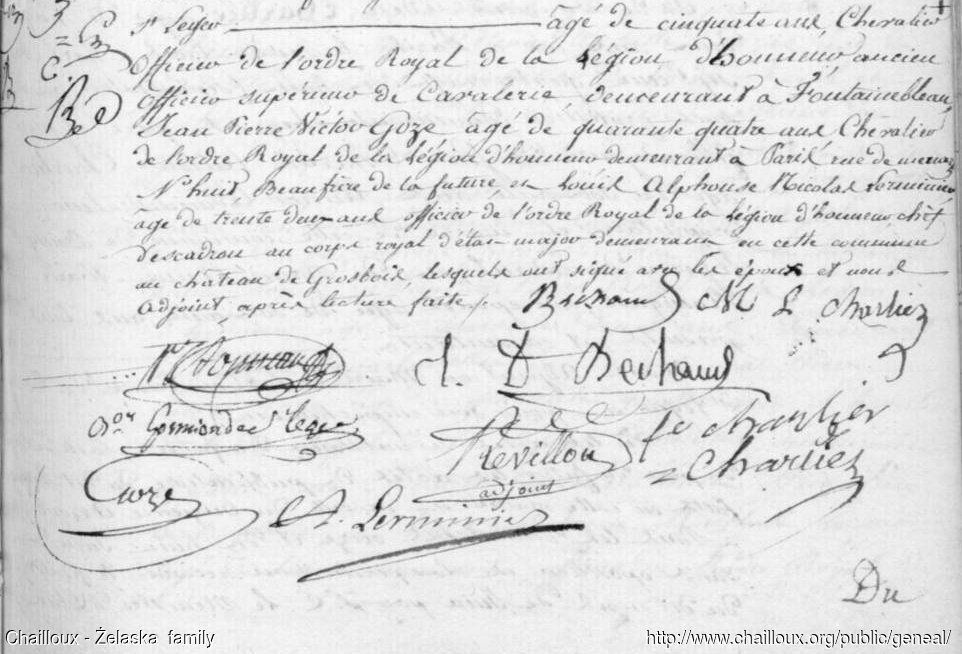 St Leger ——— âgé de cinquante ans, Chevalier
Officier de l'ordre Royal de la Légion d'honneur ancien
officier supérieur de Cavalerie, demeurant à Fontainebleau,
Jean Pierre Victor Goze âgé de quarante quatre ans Chevalier
de l'ordre Royal de la Légion d'honneur demeurant à Paris rue de
No huit Beaufrère de la future, et Louis Alphonse Nicolas
âgé de trente deux ans officier de l'ordre Royal de la Légion d'honneur chef
d'escadron au corps royal d'état major demeurant en cette commune
au château de Grosbois, lesquels ont signé avec les époux et nous
adjoint, après lecture faite.
M L Charlier
A. D Bertrand
Bon St Leger
Révillon
adjoint
fe Charlier
Charlier
Du
Chailloux - Żelaska family
http://www.chailloux.org/public/geneal/